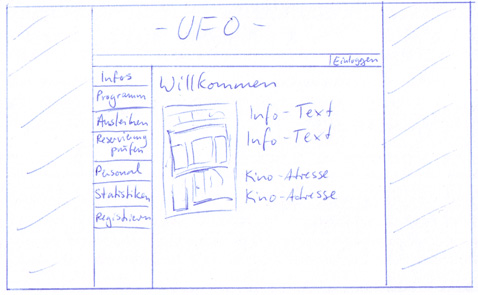 - UFO -
Einloggen
Infos
Programm
Ausleihen
Reservierung
prüfen
Personal
Statistiken
Registrieren
Willkommen
Info-Text
Info-Text
Kino-Adresse
Kino-Adresse